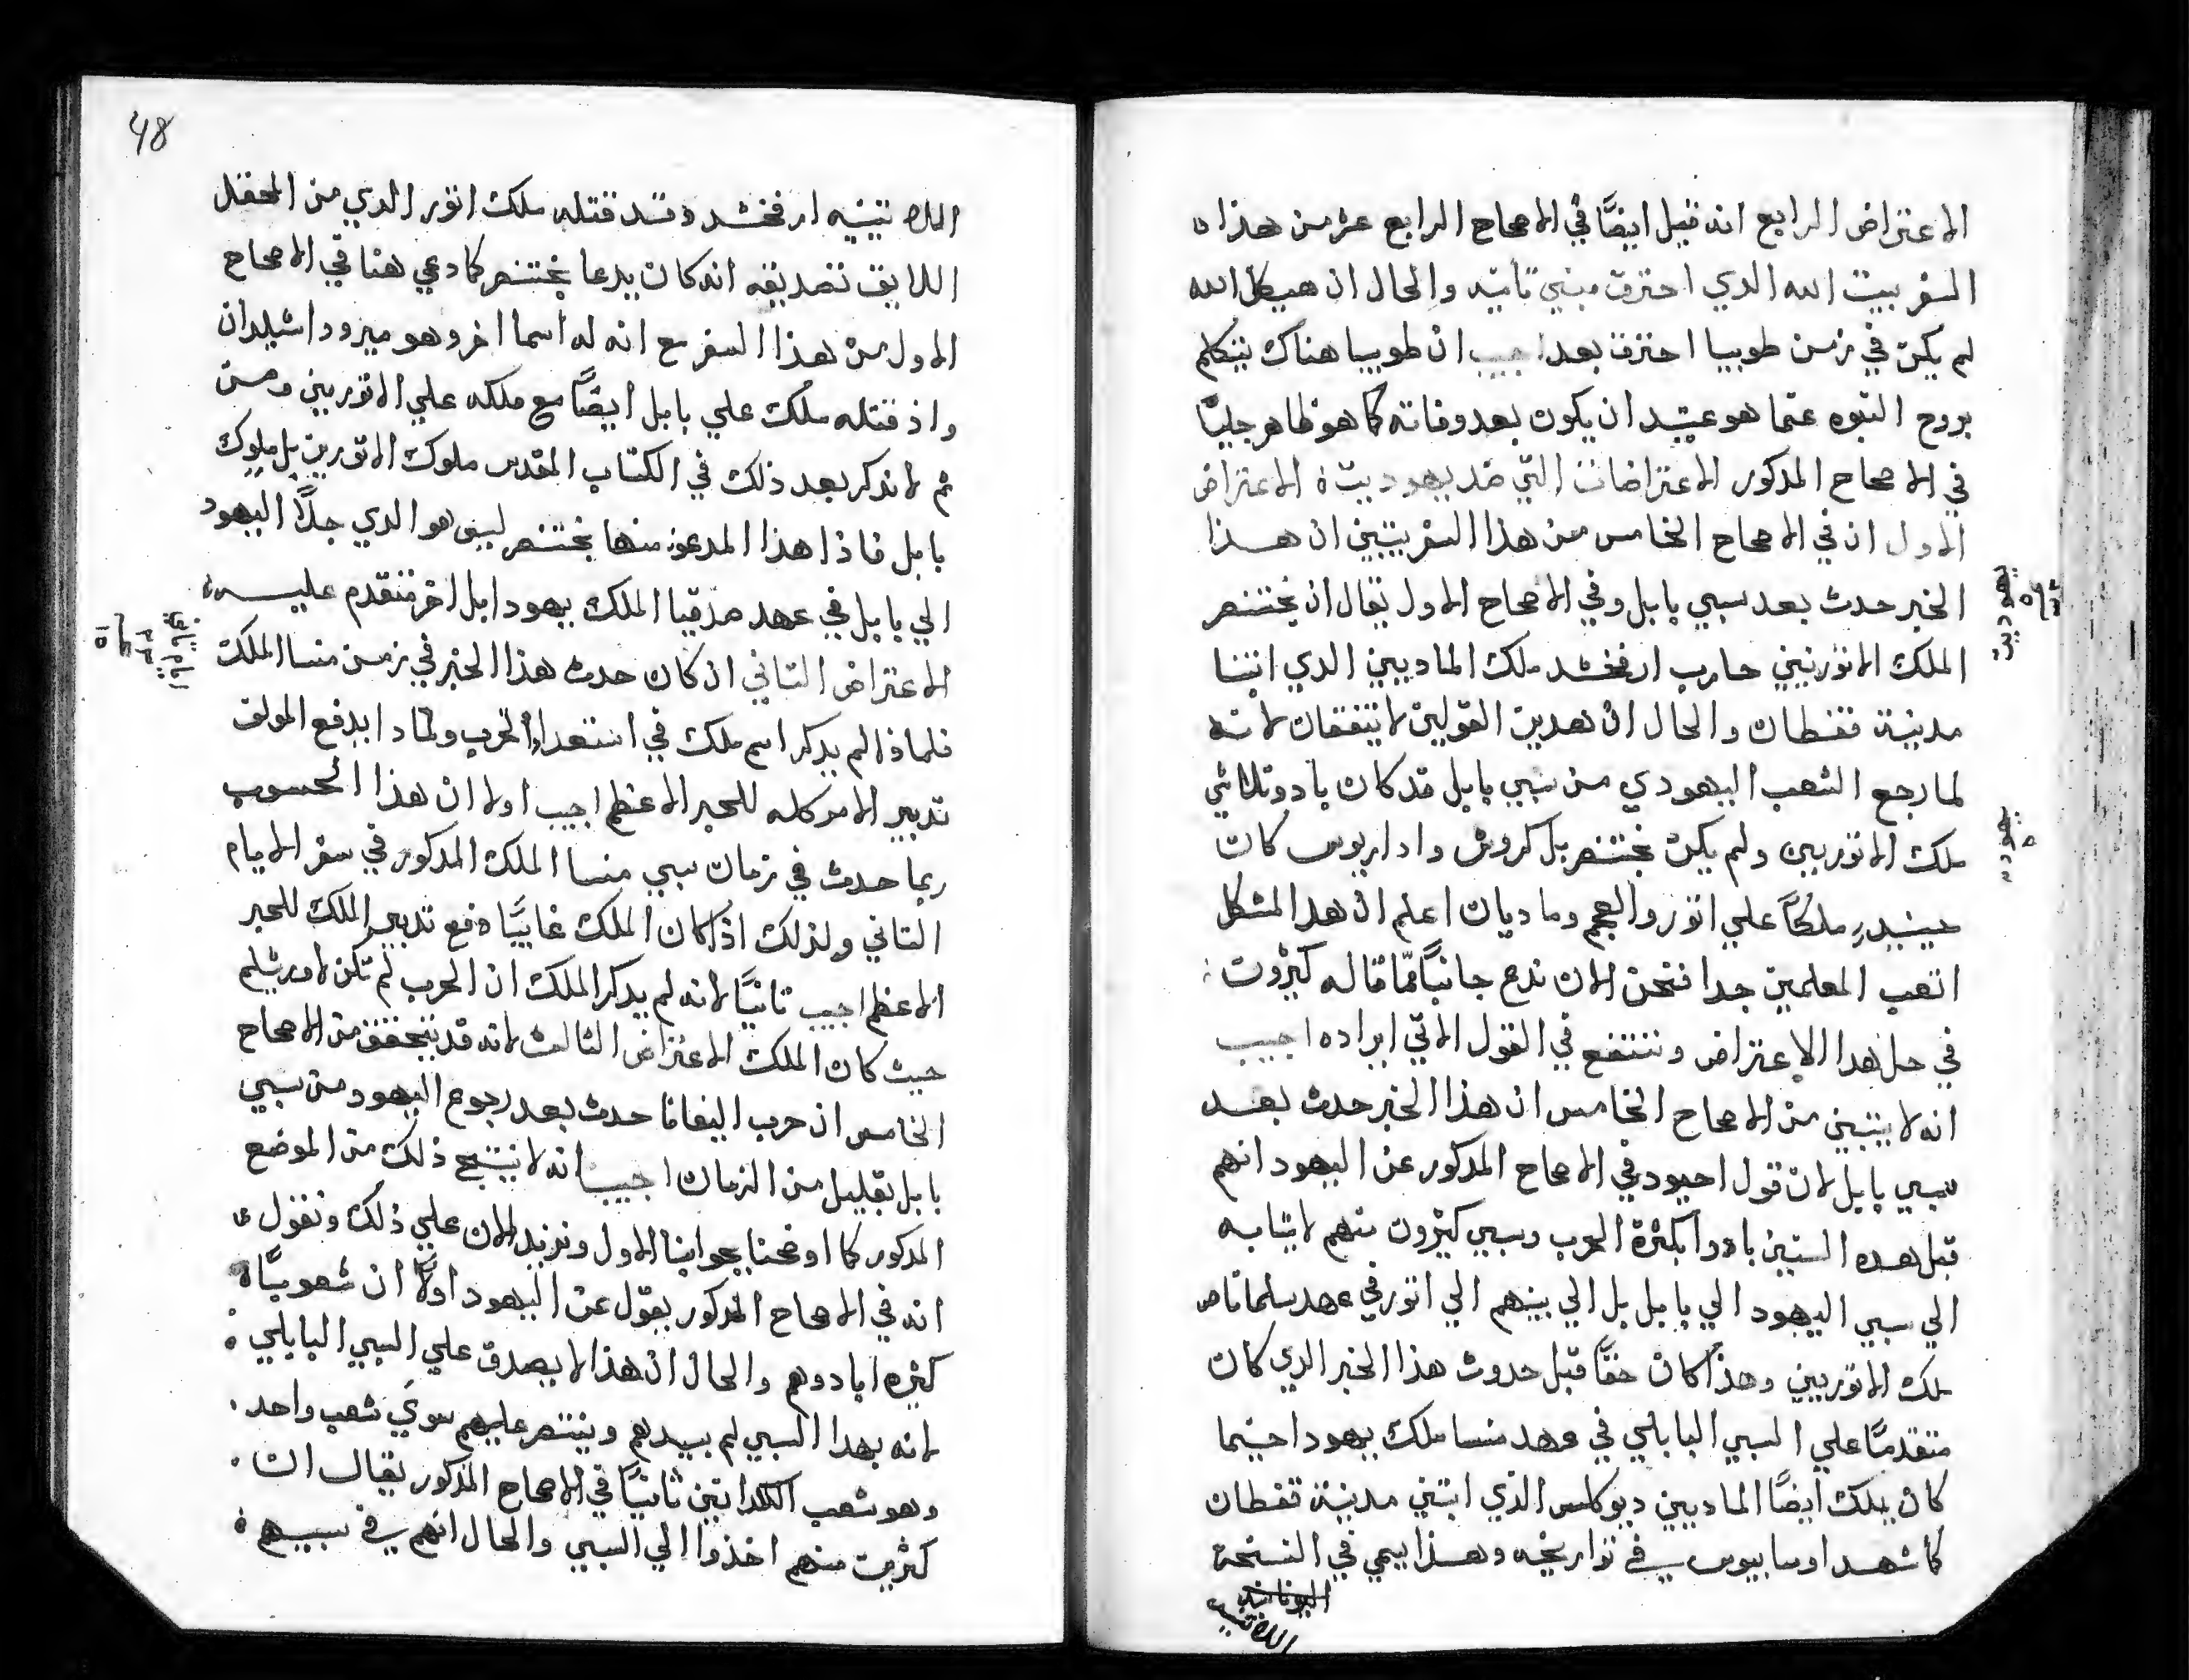 الاعتراض الرابع انه قيل ايضًا في الاصحاح الرابع عشر من هذا
السفر بيت الله الدي احترق مبني تانيه والحال ان هيكل الله
لم يكن في زمن طوبيا احترق بعد اجيب ان طوبيا هناك يتكلم
بروح النبوه عمّا هو عتيد ان يكون بعد وفاته كما هو ظاهر جليًا
في الاصحاح المدكور الاعتراضات التي ضد يهوديت ۀ الاعتراض
الاول ان في الاصحاح الخامس من هذا السفر يتبين ان هذا
الخبر حدث بعد سبي بابل وفي الاصحاح الاول يقال ان بختنصر
الملك الاتوريين حارب ارفخشد ملك الماديين الدي ابتنا
مدينة قفطان والحال ان هدين القولين لا يتفقان لانه
لما رجع الشعب اليهودي من سبي بابل قد كان باد وتلاشي
ملك الاتوريين ولم يكن بختنصر بل كروش واداريوس كان
حينيدٍ ملكًا علي اتور والعجم وماديان اعلم ان هدا المشكل
اتعب المعلمين جدا فنحن الان ندع جانبًا ممّا قاله كثيروت
في حل هدا الاعتراض وننتفع في القول الاتي ايراده اجيب
انه لا يتبين من الاصحاح الخامس ان هذا الخبر حدث بعد
سبي بابل لان قول احيود في الاصحاح المدكور عن اليهود انهم
قبل هده السنين بادوا بكثرة الحرب وسبي كثيرون منهم لا يتابه
الي سبي اليهود الي بابل بل الي بينهم الي اتور في عهد سلماناصر
ملك الاتوريين وهذا كان حقًا قبل حدوث هذا الخبر الدي كان
متقدمًا علي السبي البابلي في عهد منسا ملك يهودا حينما
كان يملك ايضًا الماديين ديوكاس الذي ابتني مدينة قفطان
كما شهد اوسابيوس في تواريخه وهذا يسمي في النسخة
اليونانيه
اللاتينيه
يهوديت
يهود
اللاتينيه ارفخشد وقد قتله ملك اتور الدي من المحقل
اللايق تصديقه انه كان يدعا بختنصر كما دعي هنا في الاصحاح
الاول من هذا السفر مع انه له اسما اخر وهو ميرود اشيلدان
واذ قتله ملك علي بابل ايضًا مع ملكه علي الاتوريين ومن
ثم لا ندكر بعد ذلك في الكتاب المقدس ملوك الاتوريين بل ملوك
بابل فاذا هذا المدعو منها بختنصر ليس هو الدي جلاّ اليهود
الي بابل في عهد صدقيا الملك يهودا بل اخر متقدم عليه ۀ
الاعتراض التاني ان كان حدث هذا الخبر في زمن منسا الملك
فلماذا لم يدكر اسم ملك في استعداد الحرب ولمادا يدفع المولف
تدبير الامر كله للحبر الاعظم اجيب اولا ان هذا المحسوب
ربما حدث في زمان سبي منسا الملك المدكور في سفر الايام
التاني ولذلك اذ كان الملك غايبًا دفع تدبير الملك للحبر
الاعظم اجيب تانيًا لانه لم يدكر الملك ان الحرب لم تكن لاورشليم
حيث كان الملك الاعتراض الثالث لانه قد يتحقق من الاصحاح
الخامس ان حرب اليفانا حدث بعد رجوع اليهود من سبي
بابل بقليل من الزمان اجيب انه لا ينتج ذلك من الموضع
المدكور كما اوضحنا بجوابنا الاول ونزيد الان علي ذلك ونقول
انه في الاصحاح المدكور يقول عن اليهود اولاً ان شعوبًا
كثيره ابادوهم والحال ان هذا لا يصدق علي السبي البابلي
لانه بهدا السبي لم يبيدهم وينتصر عليهم سوي شعب واحد
وهو شعب الكلدانين ثانيًا في الاصحاح المدكور يقال ان
كثيرين منهم اخذوا الي السبي والحال انهم في سبيهم ۀ
ايام تاني
١٥
48